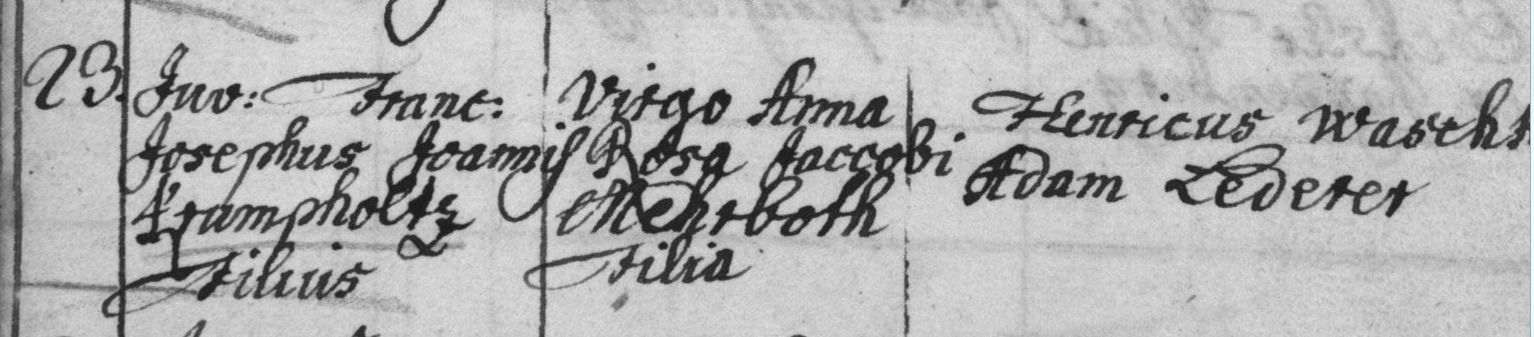 23.
Juv: Franc:
Josephus Joannis
Krumpholtz
Filius
Virgo Anna
Rosa Jaccobi
Mehrboth
Filia
Henricus Wascht
Adam Lederer